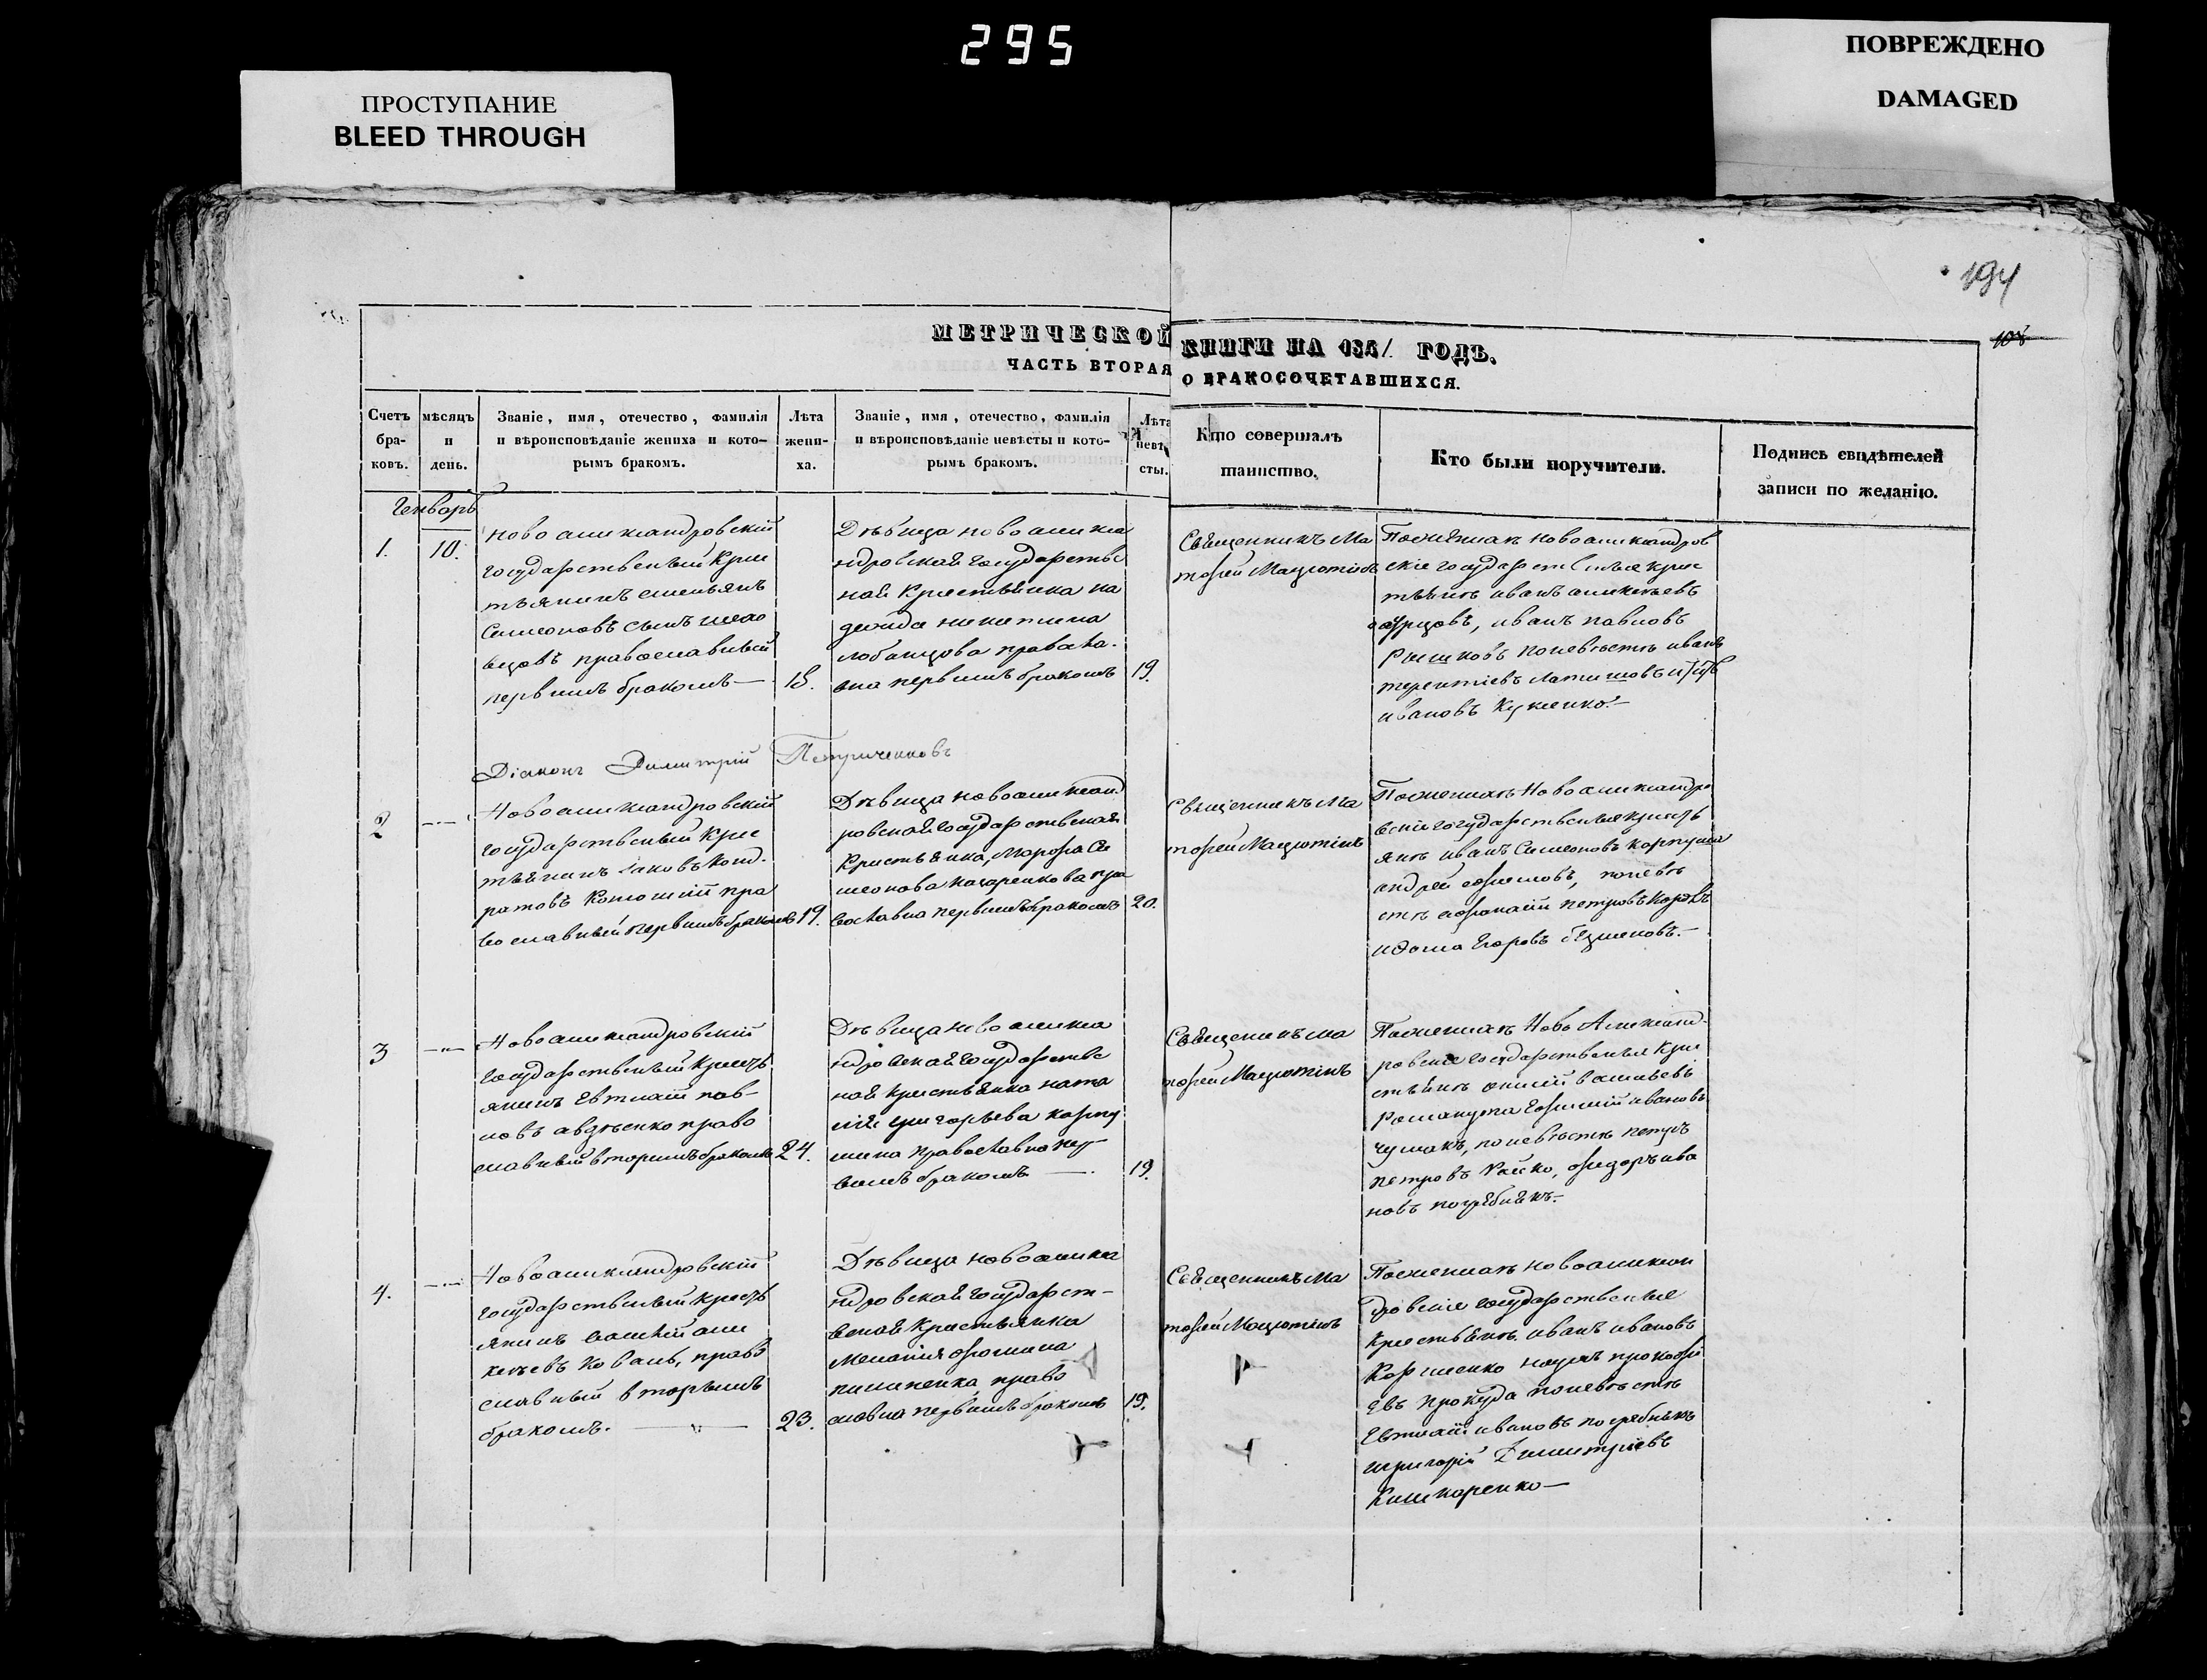 295
ПРОСТУПАНИЕ
BLEED THROUGH
ПОВРЕЖДЕНО
DAMAGED
194
МЕТРИЧЕСКОЙ КНИГИ НА 1851 ГОДЪ.
ЧАСТЬ ВТОРАЯ О БРАКОСОЧЕТАВШИХСЯ.
Счетъ бра-ковъ.
мѣсяцъ и день.
Званіе, имя, отечество, фамилія
и вѣроисповѣданіе жениха и кото-
рымъ бракомъ.
Лѣта жени-ха.
Званіе, имя, отечество, фамилія
и вѣроисповѣданіе невѣсты и кото-
рымъ бракомъ.
Лѣта невѣ-сты.
Кто совершалъ
таинство.
Кто были поручители.
Подпись свидѣтелей
записи по желанію.
Генварь
1.
10.
Новоалександровскій
государственный крес
тьянинъ
Симеоновъ сынъ
православный
первымъ бракомъ
18.
Дѣвица новоалекса
ндровская государстве
ная крестьянка На
дежда Никитина
Лобанцова правосла.
вна первымъ бракомъ
19.
Священникъ Ма
тфей Мацютинъ
По женихѣ новоалександров
скіе государственые крес
тьяне иванъ алексѣевъ
иванъ павловъ
по невѣстѣ иванъ
терентіевъ Латишовъ и
ивановъ
Діаконъ Димитрій Петриченковъ
2
Новоалександровскій
государственый крес
тьянинъ Іаковъ Конд.
ратовъ пра
вославный первымъ бракомъ
19.
Дѣвица новоалександ
ровская государственая
крестьянка, Марфа Си
меонова Назаренкова пра
вославна первымъ бракомъ
20.
Священникъ Ма
тфей Мацютинъ
По женихѣ Новоалександро
вскіе государственые кресть
яне иванъ Симеоновъ
андрей по невѣ
стѣ афанасій петровъ
и Фома Егоровъ
3
Новоалександровскій
государственый кресть
янинъ Евтихій пав-
ловъ авдѣенко право
славный вторымъ бракомъ
24.
Дѣвица новоалекса
ндровская государстве
ная крестьянка ната
лія григорьева карпу
шина православна пер
вымъ бракомъ
19.
Священникъ Ма
тфей Мацютинъ
По женихѣ Ново Александ-
ровскіе государственые кре
стьяне василіевъ
ивановъ
чумакъ, по невѣстѣ петръ
петровъ Райко, ива
новъ погребнякъ.
4.
Новоалександровскій
государственый кресть
янинъ василій але
ксѣевъ Коваль, право
славный вторымъ
бракомъ.
23.
Дѣвица новоалекса
ндровская государст-
веная крестьянка
Меланія фомина
пилипенка, право
славна первымъ бракомъ
19.
Священникъ Ма
тфей Мацютинъ
По женихѣ новоалексан
дровскіе государственые
крестьяне иванъ ивановъ
наумъ прокофі
евъ прокуда по невѣстѣ
Евтихій ивановъ погребнякъ
игригорій Димитріевъ